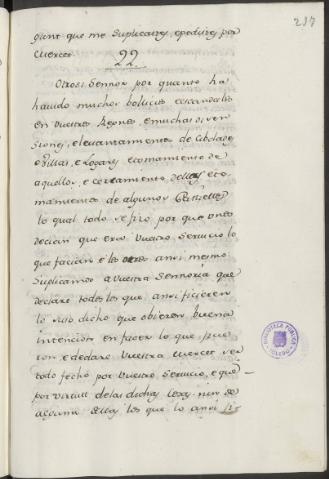 217
gunt que me suplicastes, epedistes por
merced.
22
Otrosi Sennor por quanto ha
havido muchos bollicios eescandalos
en vuestros Regnos, emuchas diven
siones, elevantamientos de Cibdades
e Villas, e Logares etomamiento de
aquellos, e cercamiento dellos eto
mamientos de algunos Castiellos
lo qual todo se fizo por que unos
decian que era vuestro servicio lo
que facian e los otros ansi mesmo
suplicamos a vuestra Sennoria que
declare todos los que ansi ficieren
lo suso dicho que obieron buena
intencion en facer lo que ficie
ron e declare vuestra merced ser
todo fecho por vuestro servicio, e que
por virtud de las dichas cosas nin de
alguna dellas los que lo ansi fi-
BIBLIOTECA PUBLICA
TOLEDO